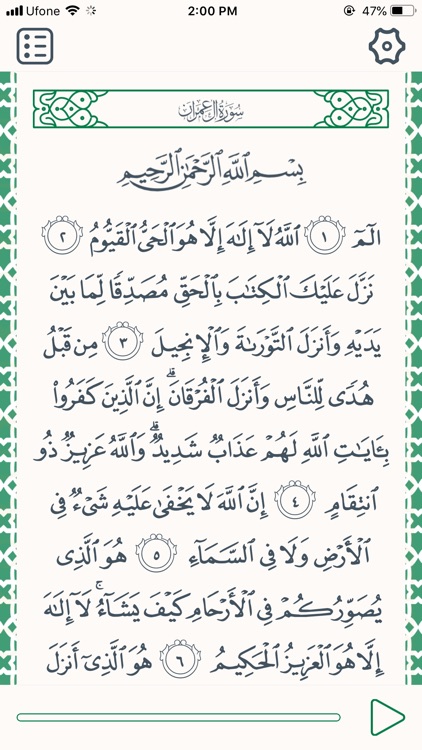 Ufone 2:00 PM 47%
سُورَةُ آلِ عِمْرَان
بِسْمِ ٱللَّهِ ٱلرَّحْمَٰنِ ٱلرَّحِيمِ
الٓمٓ ١ ٱللَّهُ لَآ إِلَٰهَ إِلَّا هُوَ ٱلْحَىُّ ٱلْقَيُّومُ ٢
نَزَّلَ عَلَيْكَ ٱلْكِتَٰبَ بِٱلْحَقِّ مُصَدِّقًا لِّمَا بَيْنَ
يَدَيْهِ وَأَنزَلَ ٱلتَّوْرَىٰةَ وَٱلْإِنجِيلَ ٣ مِن قَبْلُ
هُدًى لِّلنَّاسِ وَأَنزَلَ ٱلْفُرْقَانَ ۗ إِنَّ ٱلَّذِينَ كَفَرُوا۟
بِـَٔايَٰتِ ٱللَّهِ لَهُمْ عَذَابٌ شَدِيدٌ ۗ وَٱللَّهُ عَزِيزٌ ذُو
ٱنتِقَامٍ ٤ إِنَّ ٱللَّهَ لَا يَخْفَىٰ عَلَيْهِ شَىْءٌ فِى
ٱلْأَرْضِ وَلَا فِى ٱلسَّمَآءِ ٥ هُوَ ٱلَّذِى
يُصَوِّرُكُمْ فِى ٱلْأَرْحَامِ كَيْفَ يَشَآءُ ۚ لَآ إِلَٰهَ
إِلَّا هُوَ ٱلْعَزِيزُ ٱلْحَكِيمُ ٦ هُوَ ٱلَّذِىٓ أَنزَلَ